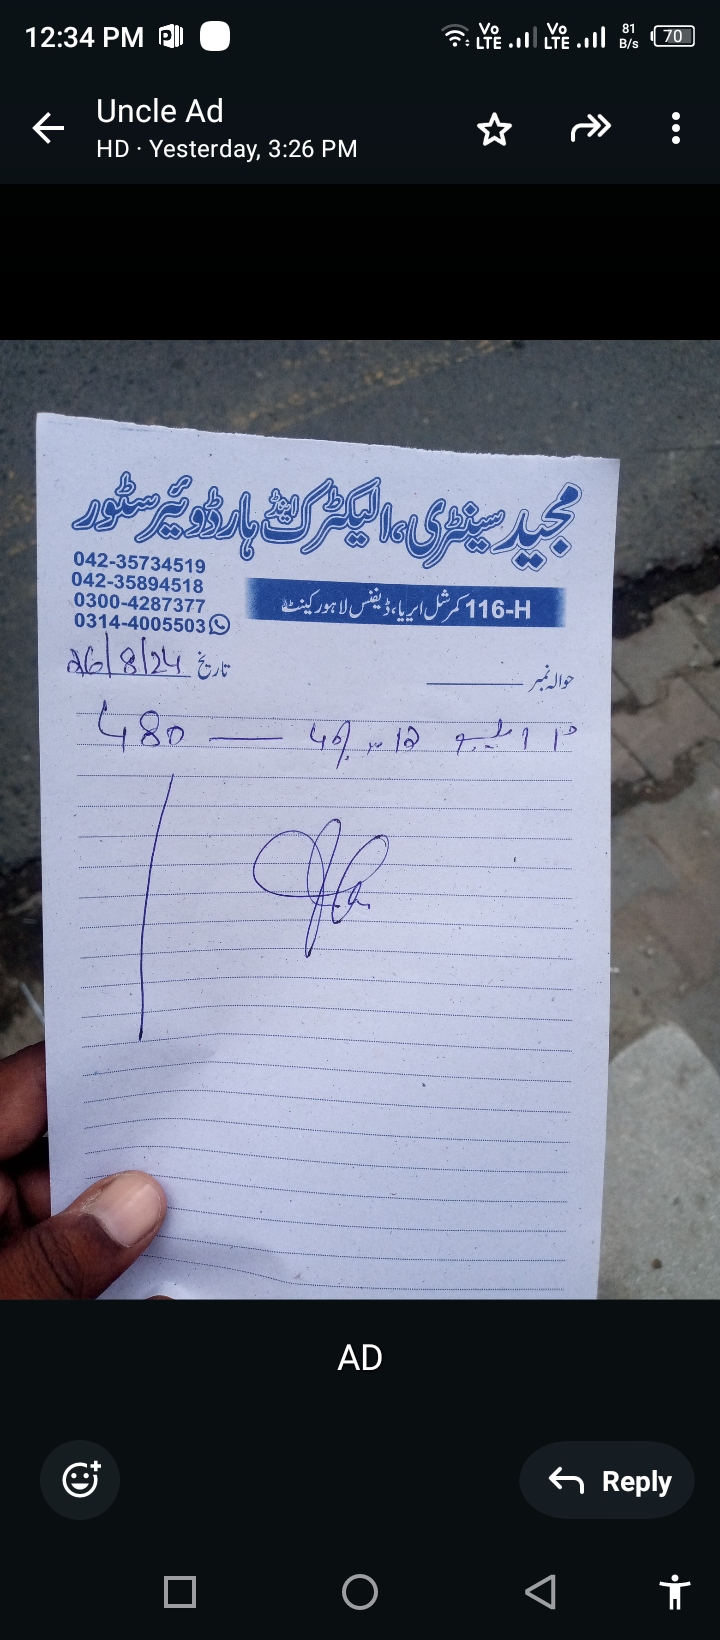 12:34 PM
Vo LTE Vo LTE 81 B/s 70
Uncle Ad
HD · Yesterday, 3:26 PM
مجید سینٹری، الیکٹرک اینڈ ہارڈویئر سٹور
042-35734519
042-35894518
0300-4287377
0314-4005503
116-H کمرشل ایریا، ڈیفنس لاہور کینٹ
حوالہ نمبر
تاریخ 26/8/24
480
AD
Reply